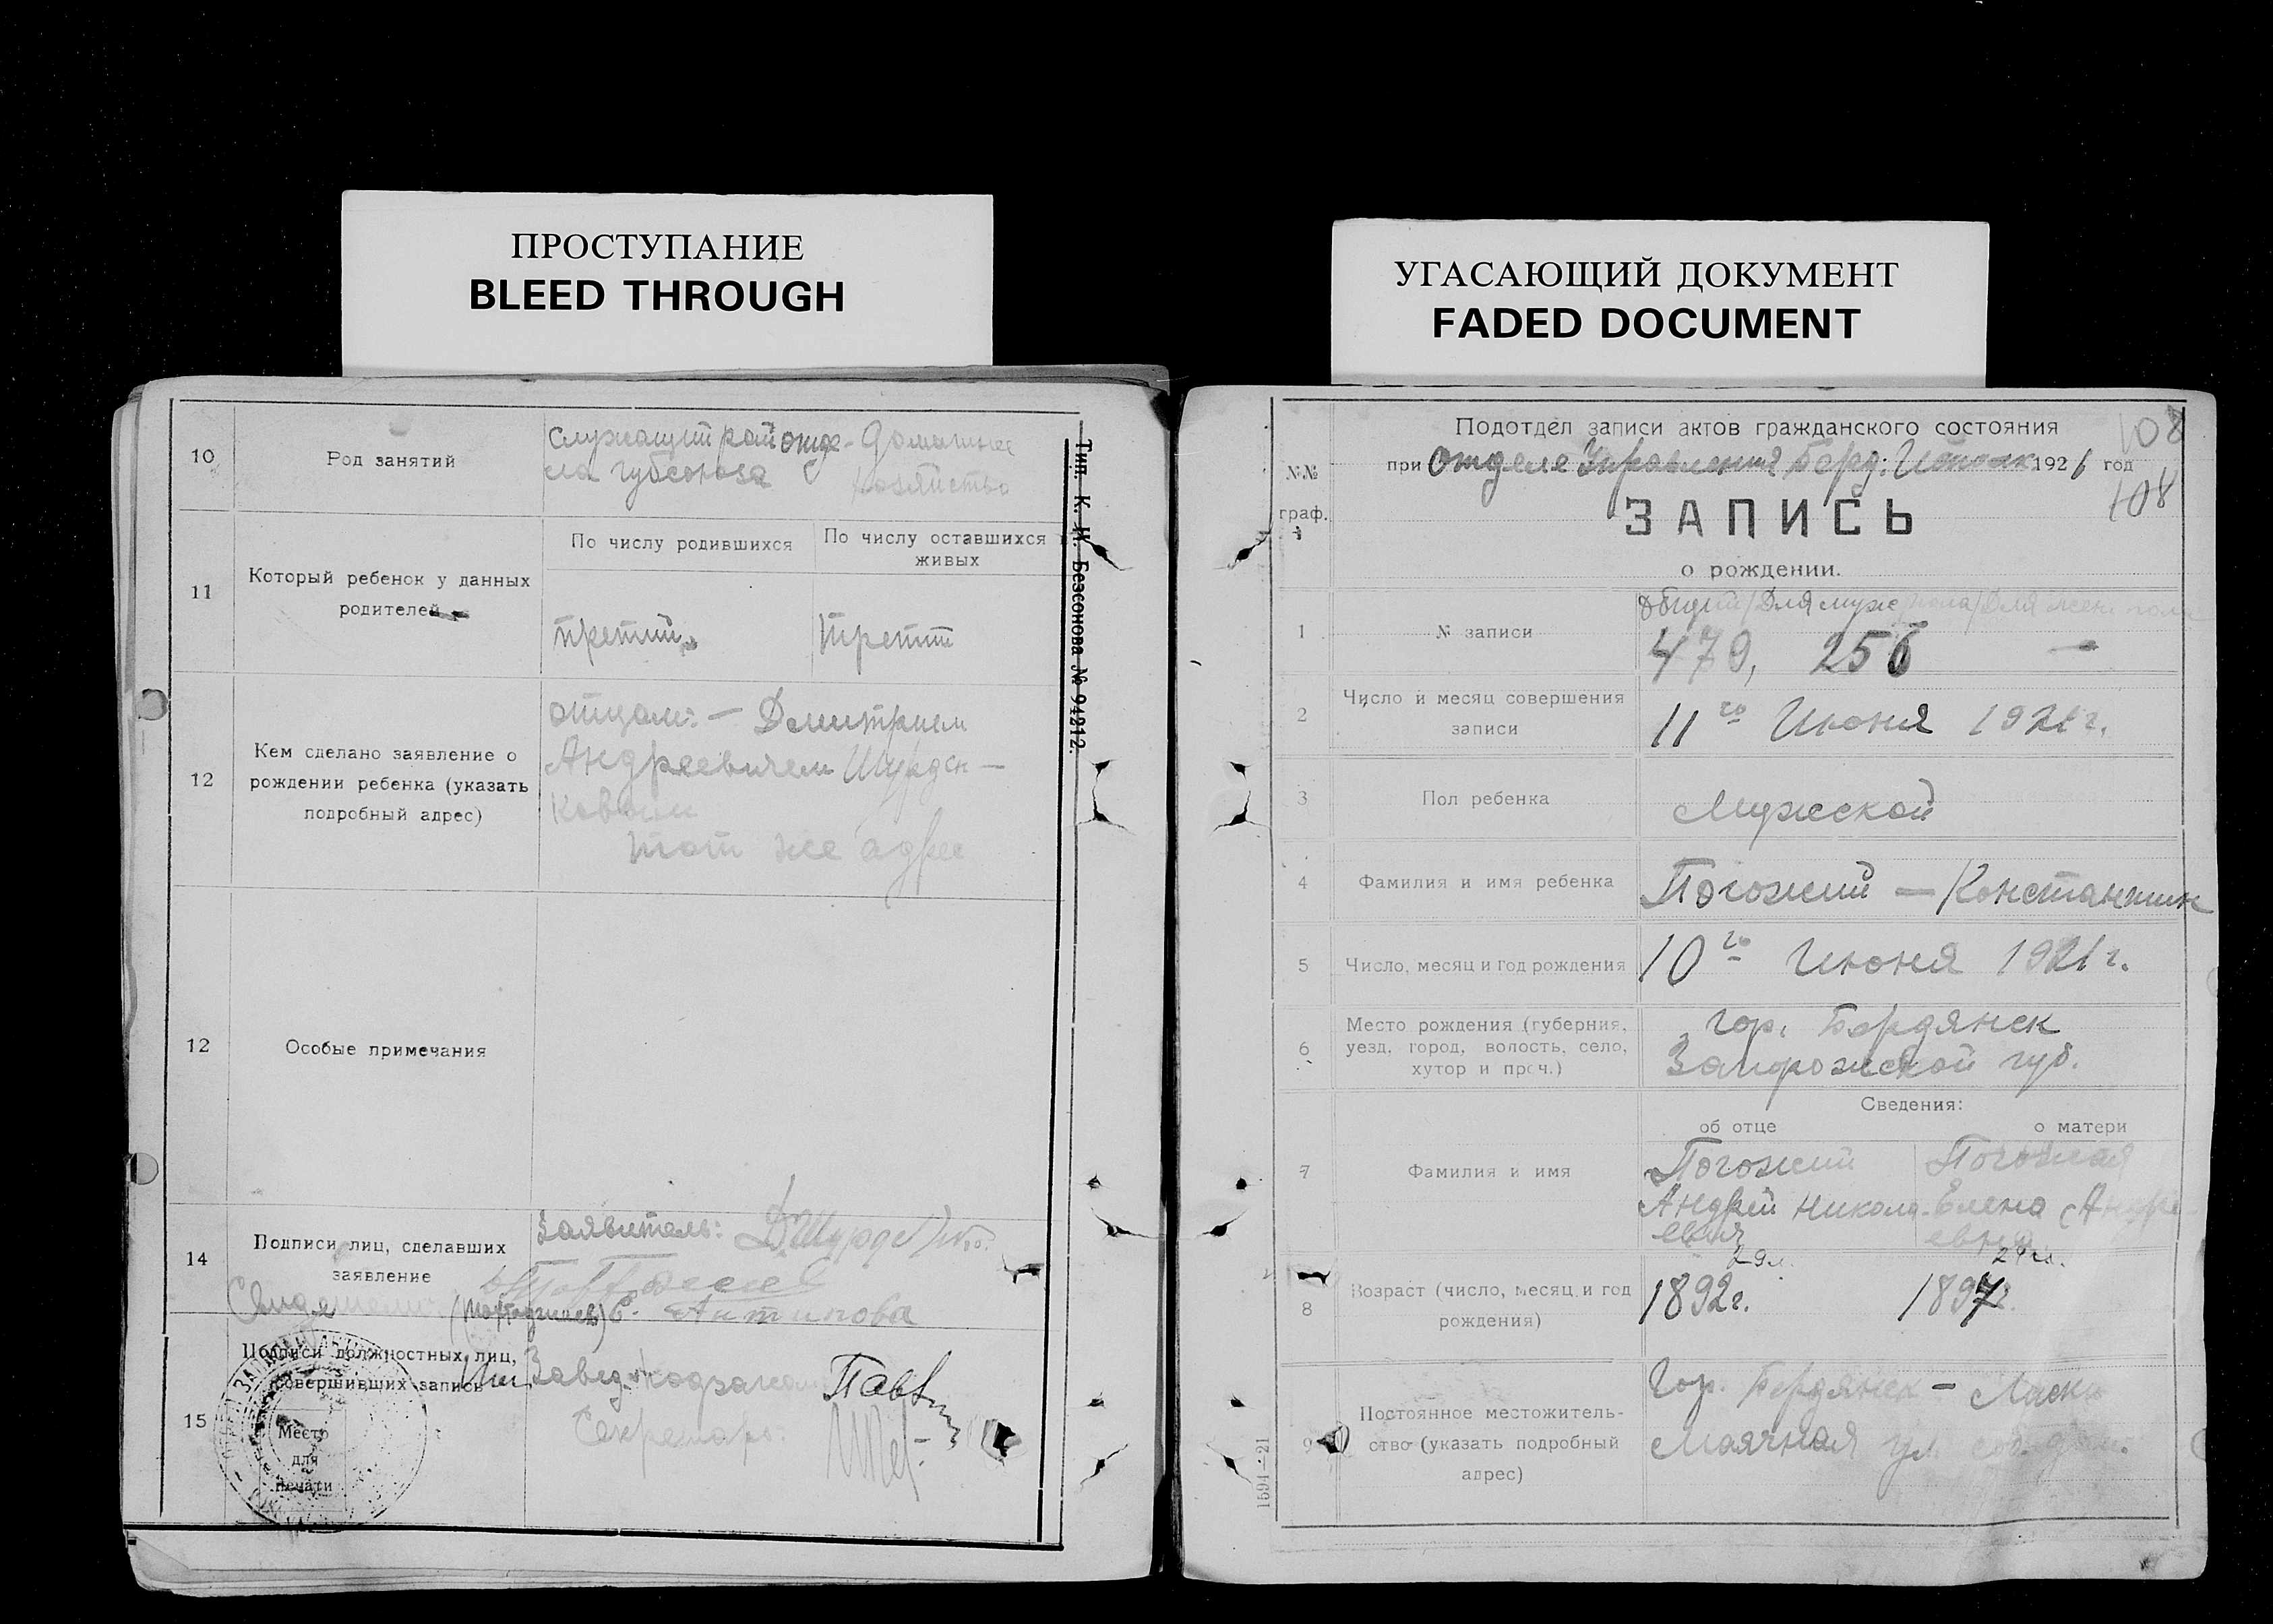 ПРОСТУПАНИЕ
BLEED THROUGH
10
Род занятий
Служащий райотде-
ла губсоюза
Домашнее
хозяйство
11
Который ребенок у данных
родителей
По числу родившихся
По числу оставшихся
живых
третий
третий
12
Кем сделано заявление о
рождении ребенка (указать
подробный адрес)
отцом: — Дмитрием
Андреевичем Шурден-
ковым
тот же адрес
12
Особые примечания
14
Подписи лиц, сделавших
заявление
Заявитель:
Антипова
15
Подписи должностных лиц,
совершивших запись
Завед.
Секретарь:
Место
для
печати
Тип. К. И. Безсонова № 94212.
УГАСАЮЩИЙ ДОКУМЕНТ
FADED DOCUMENT
108
108
№№
граф.
Подотдел записи актов гражданского состояния
при Отделе Управления Берд. 1921 год
ЗАПИСЬ
о рождении.
1
№ записи
Общий/Для муж. пола/Для жен. пола
479, 256 —
2
Число и месяц совершения
записи
11го Июня 1921г.
3
Пол ребенка
Мужской
4
Фамилия и имя ребенка
Погожий — Константин
5
Число, месяц и год рождения
10го Июня 1921г.
6
Место рождения (губерния,
уезд, город, волость, село,
хутор и проч.)
гор. Бердянск
Запорожской губ.
Сведения:
об отце
о матери
7
Фамилия и имя
Погожий
Андрей Никола-
евич
Погожая
Елена Андре-
евна
8
Возраст (число, месяц и год
рождения)
29л.
1892г.
24г.
1897г.
9
Постоянное местожитель-
ство (указать подробный
адрес)
Гор. Бердянск —
Маячная ул. соб. дом.
1594—21